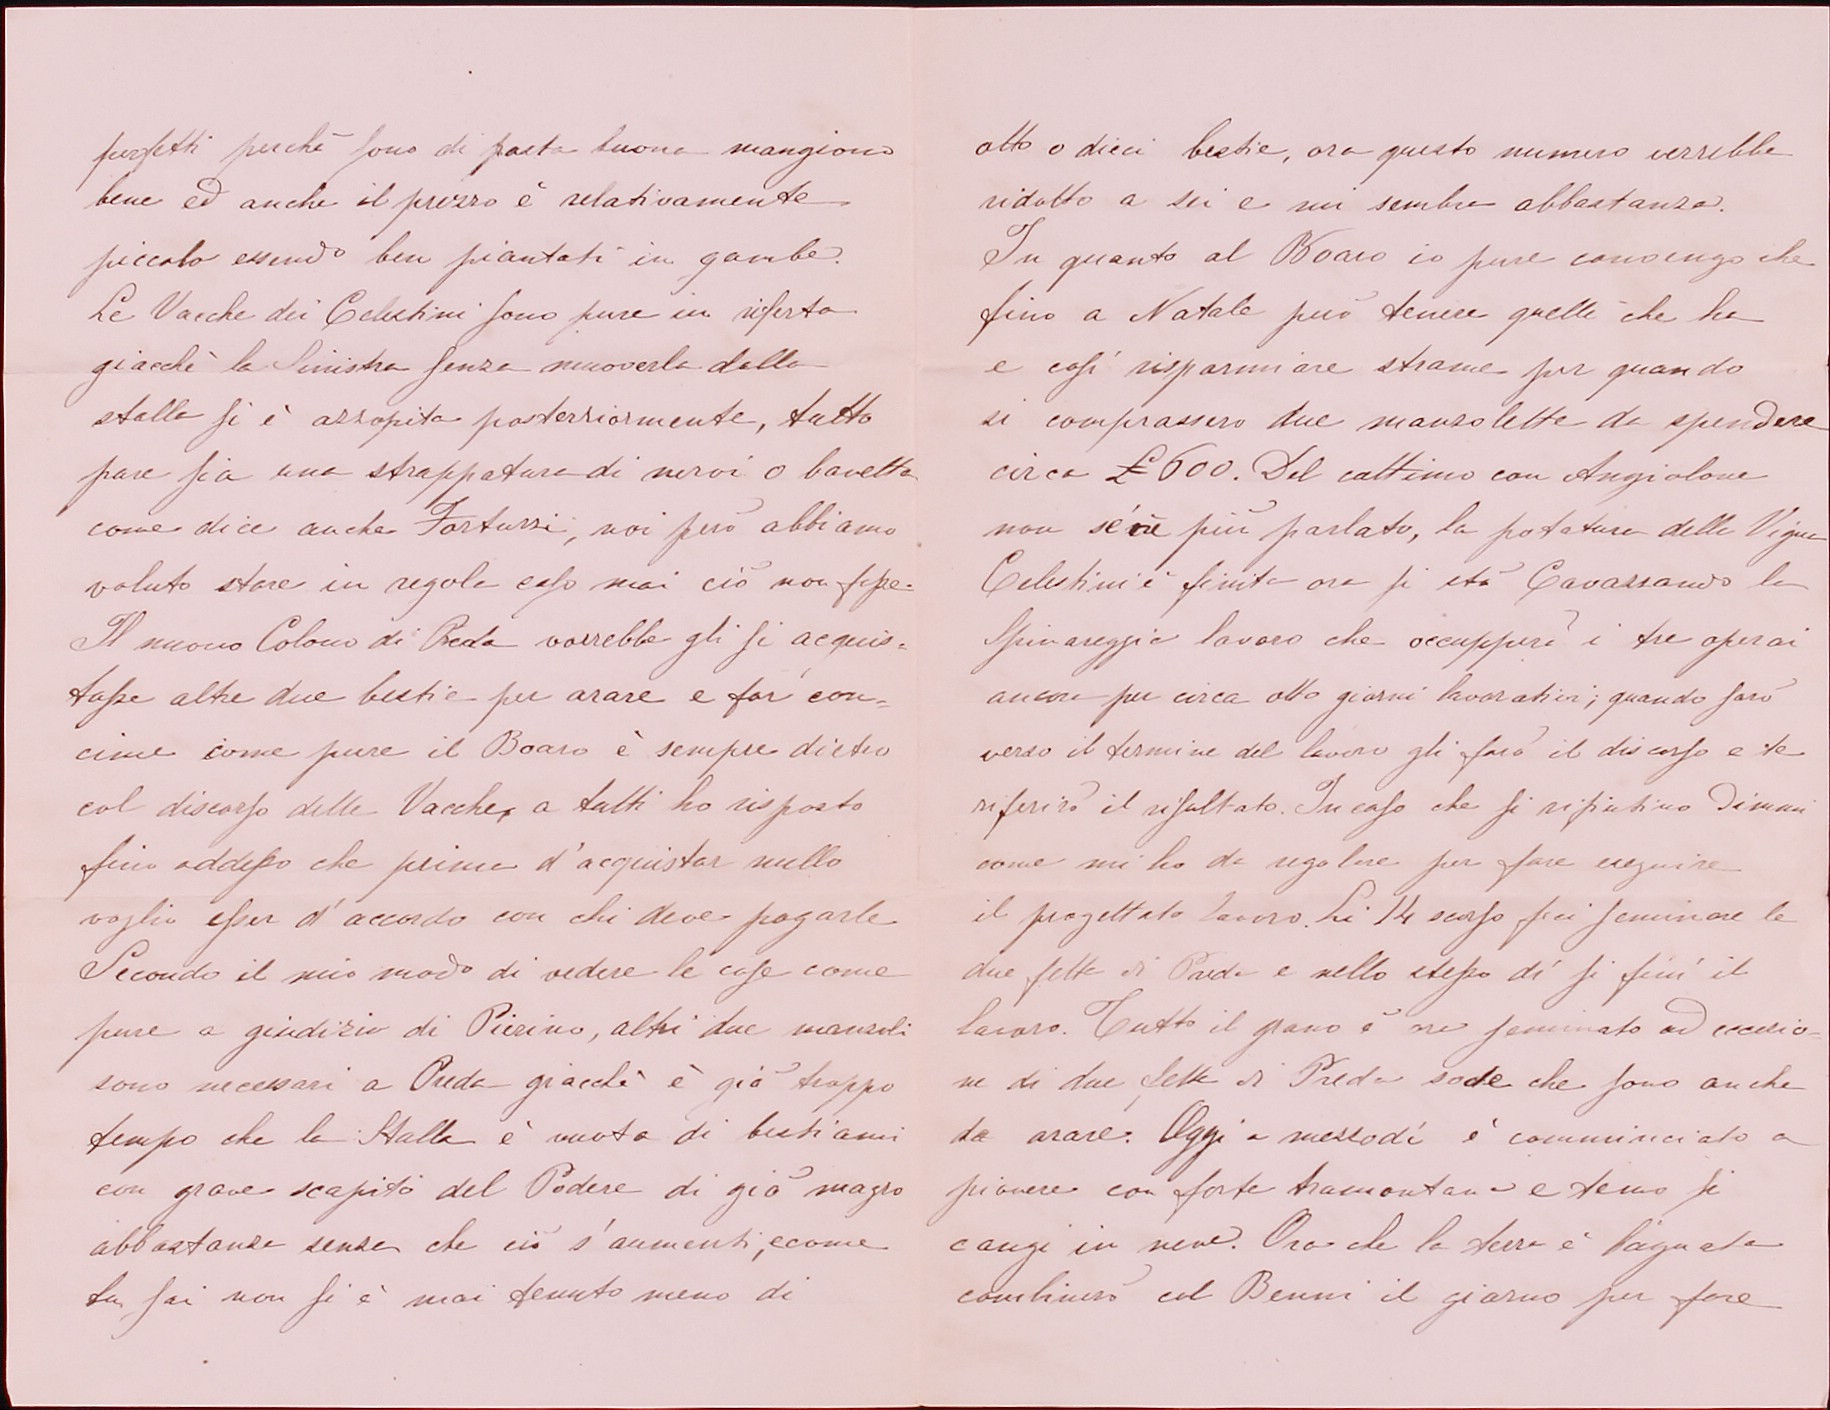 perfetti perchè sono di pasta buona mangiono
bene ed anche il prezzo è relativamente
piccolo essendo ben piantati in gambe.
Le Vacche dei Celestini sono pure in riferta
giacchè la Sinistra senza muoverla dalla
stalla si è azzopita posterriormente, tutto
pare sia una strappatura di nervi o bavetta
come dice anche Fortuzzi, noi però abbiamo
voluto stare in regola caso mai ciò non fosse.
Il nuovo Colono di Preda vorrebbe gli si acquis=
tasse altre due bestie per arare e far con=
cime come pure il Boaro è sempre dietro
col discorso delle Vacche, a tutti ho risposto
fino addesso che prima d'acquistar nullo
voglio esser d'accordo con chi deve pagarle
Secondo il mio modo di vedere le cose come
pure a giudizio di Pierino, altri due manzoli
sono necessari a Preda giacchè è già troppo
tempo che la Stalla è vuota di bestiami
con grave scapito del Podere di già magro
abbastanza senza che ciò s'aumenti, e come
tu sai non si è mai tenuto meno di
otto o dieci bestie, ora questo numero verrebbe
ridotto a sei e mi sembra abbastanza.
In quanto al Boaro io pure convengo che
fino a Natale può tenere quelle che ha
e così risparmiare strame per quando
si comprassero due manzolette da spendere
circa £ 600. Del cottimo con Angiolone
non se n'è più parlato, la potatura della Vigna
Celestini è finita ora si stà Cavazzando la
Spinareggia lavoro che occupperà i tre operai
ancora per circa otto giorni lavorativi; quando sarò
verso il termine del lavoro gli farò il discorso e te
riferirò il risultato. In caso che si rifiutino Dimmi
come mi ho da regolare per fare eseguire
il progettato lavoro. Li 14 scorso feci seminare le
due fette di Preda e nello stesso dí si finí il
lavoro. Tutto il grano è ora seminato ad eccezio=
ne di due fette di Preda sode che sono anche
da arare. Oggi a mezzodí è comminciato a
piovere con forte tramontana e temo si
cangi in neve. Ora che la terra è bagnata
combinerò col Benni il giorno per fare